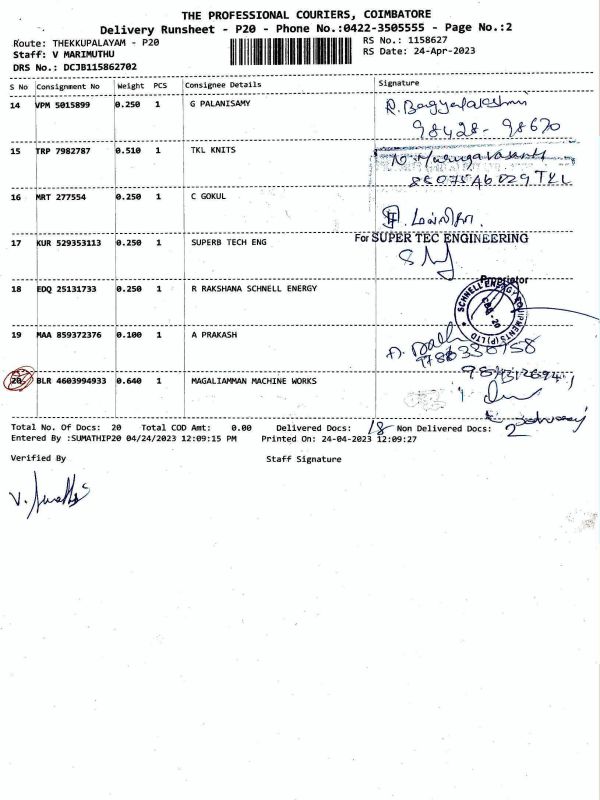 THE PROFESSIONAL COURIERS, COIMBATORE
Delivery Runsheet - P20 - Phone No.:0422-3505555 - Page No.:2
Route: THEKKUPALAYAM - P20
RS No.: 1158627
Staff: V MARIMUTHU
RS Date: 24-Apr-2023
DRS No.: DCJB115862702
S No Consignment No Weight PCS Consignee Details Signature
14 VPM 5015899 0.250 1 G PALANISAMY R. Bagyalakshmi
98428-98670
15 TRP 7982787 0.510 1 TKL KNITS
16 MRT 277554 0.250 1 C GOKUL
For SUPER TEC ENGINEERING
17 KUR 529353113 0.250 1 SUPERB TECH ENG
Proprietor
18 EDQ 25131733 0.250 1 R RAKSHANA SCHNELL ENERGY
SCHNELL ENERGY EQUIPMENTS (P) LTD
CBE - 20
19 MAA 859372376 0.100 1 A PRAKASH
20 BLR 4603994933 0.640 1 MAGALIAMMAN MACHINE WORKS
Total No. Of Docs: 20 Total COD Amt: 0.00 Delivered Docs: 18 Non Delivered Docs: 2
Entered By :SUMATHIP20 04/24/2023 12:09:15 PM Printed On: 24-04-2023 12:09:27
Verified By Staff Signature